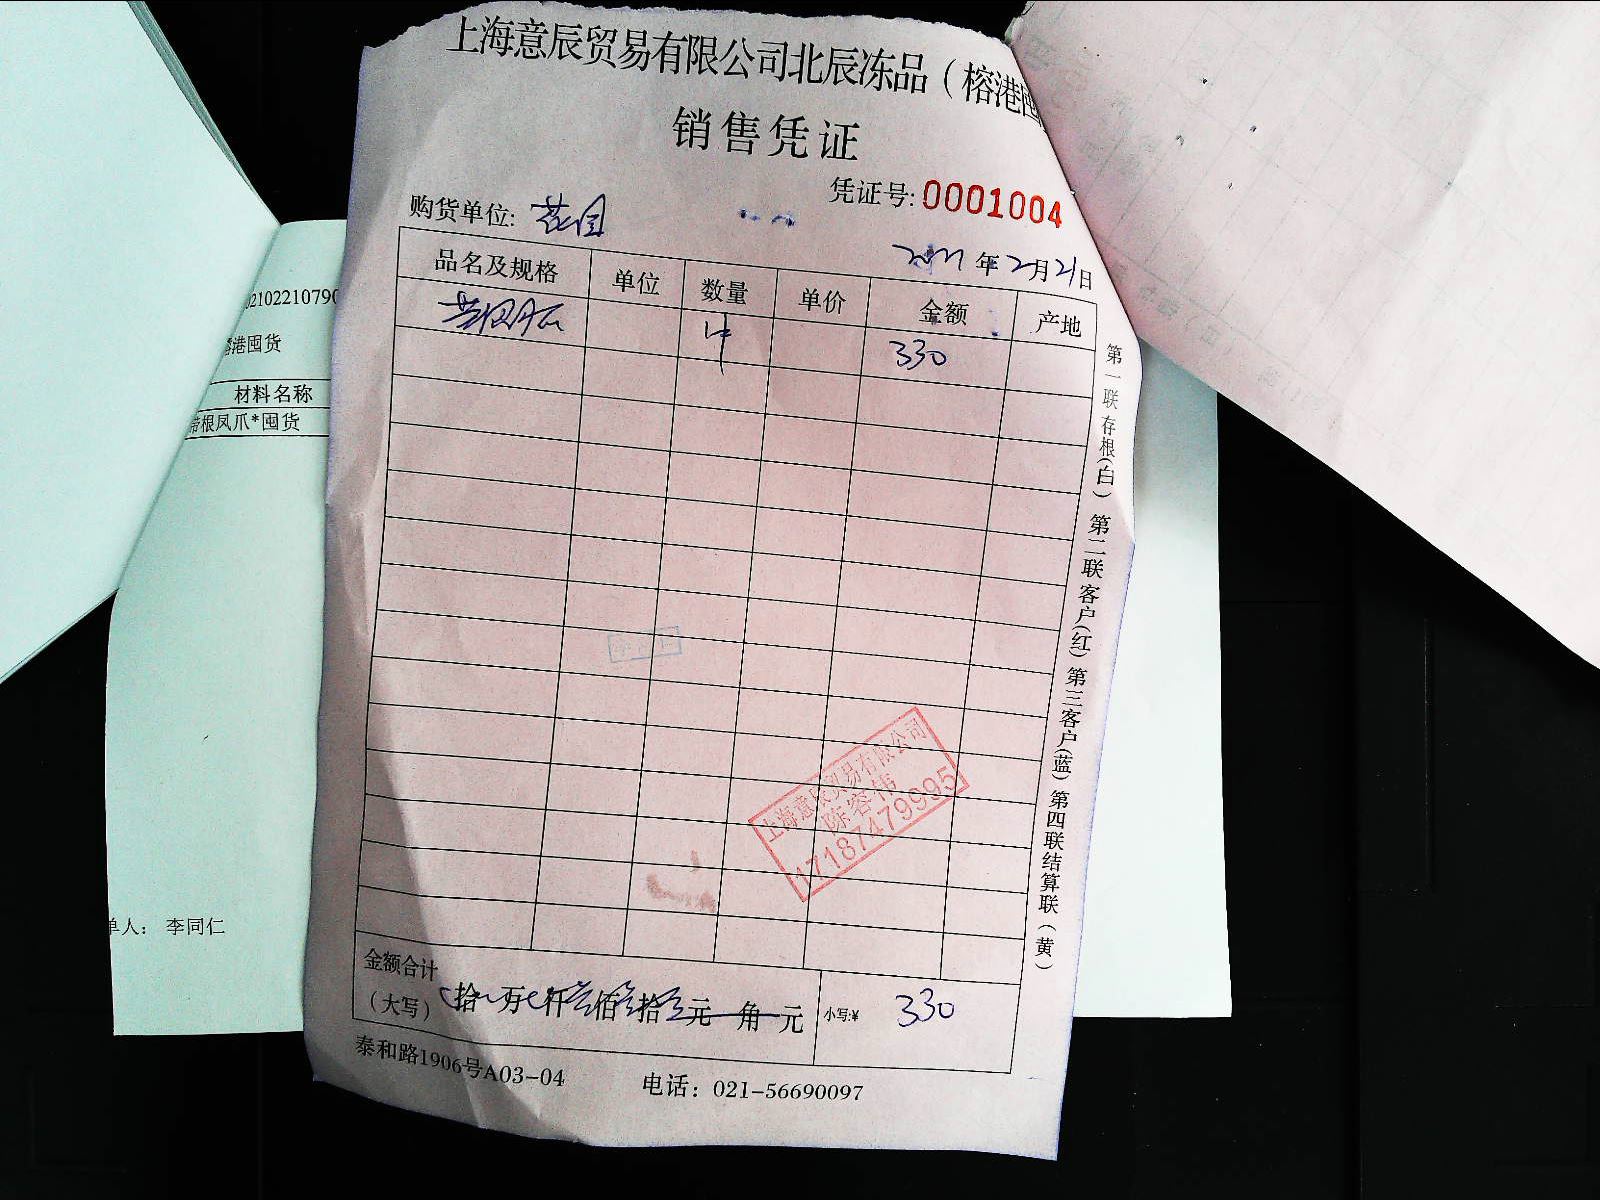 上海意辰贸易有限公司北辰冻品（榕港囤
销售凭证
凭证号: 0001004
购货单位: 花园
2021年2月21日
品名及规格 单位 数量 单价 金额 产地
330
第一联存根(白) 第二联客户(红) 第三客户(蓝) 第四联结算联(黄)
上海意辰贸易有限公司
陈容伟
17187479995
金额合计
（大写） 拾 万 仟 佰 拾 元 角 元 小写:¥ 330
泰和路1906号A03-04 电话：021-56690097
02102210790
港囤货
材料名称
带根凤爪*囤货
单人： 李同仁